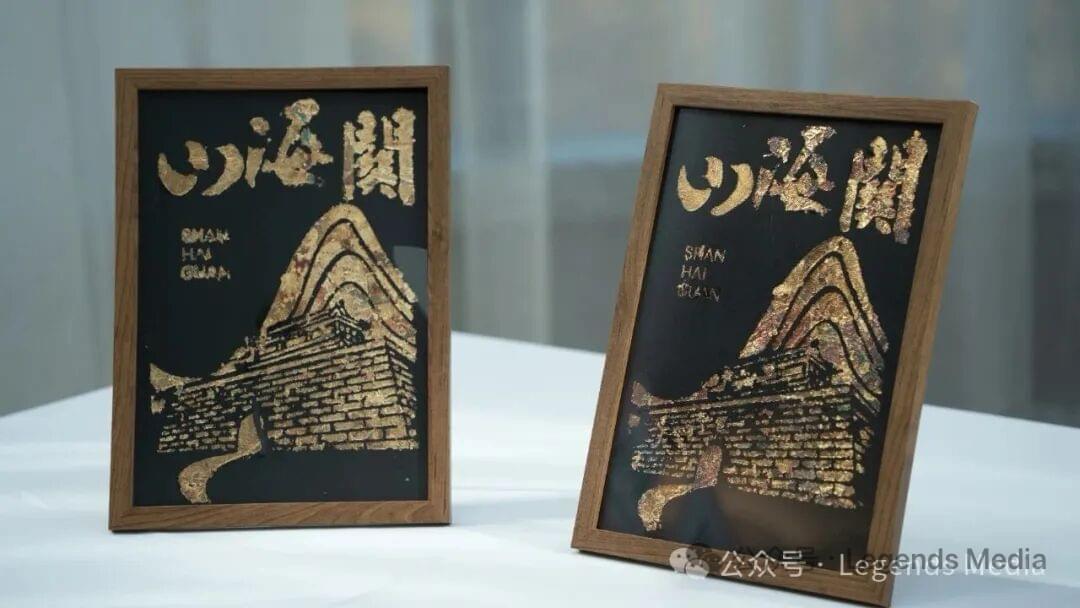 山海関
SHAN
HAI
GUAN
山海関
SHAN
HAI
GUAN
公众号 · Legends Media